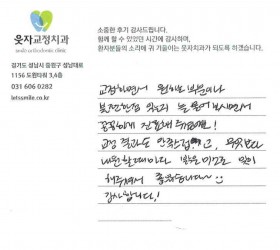 웃자교정치과
usdo orthodontic clinic
경기도 성남시 중원구 성남대로
1156 도원타워 3,4층
031 606 0282
letssmile.co.kr
소중한 후기 감사드립니다.
함께 할 수 있었던 시간에 감사하며,
환자분들의 소리에 귀 기울이는 웃자치과가 되도록 하겠습니다.
교정하면서 원하는 부분이나
불편한점 있는지 늘 물어봐주시면서
꼼꼼하게 진료해 주셨어요!
교정 결과도 만족스럽고, 무엇보다
내원할때마다 밝은 미소로 맞이
해주셔서 좋았습니다~
감사합니다!